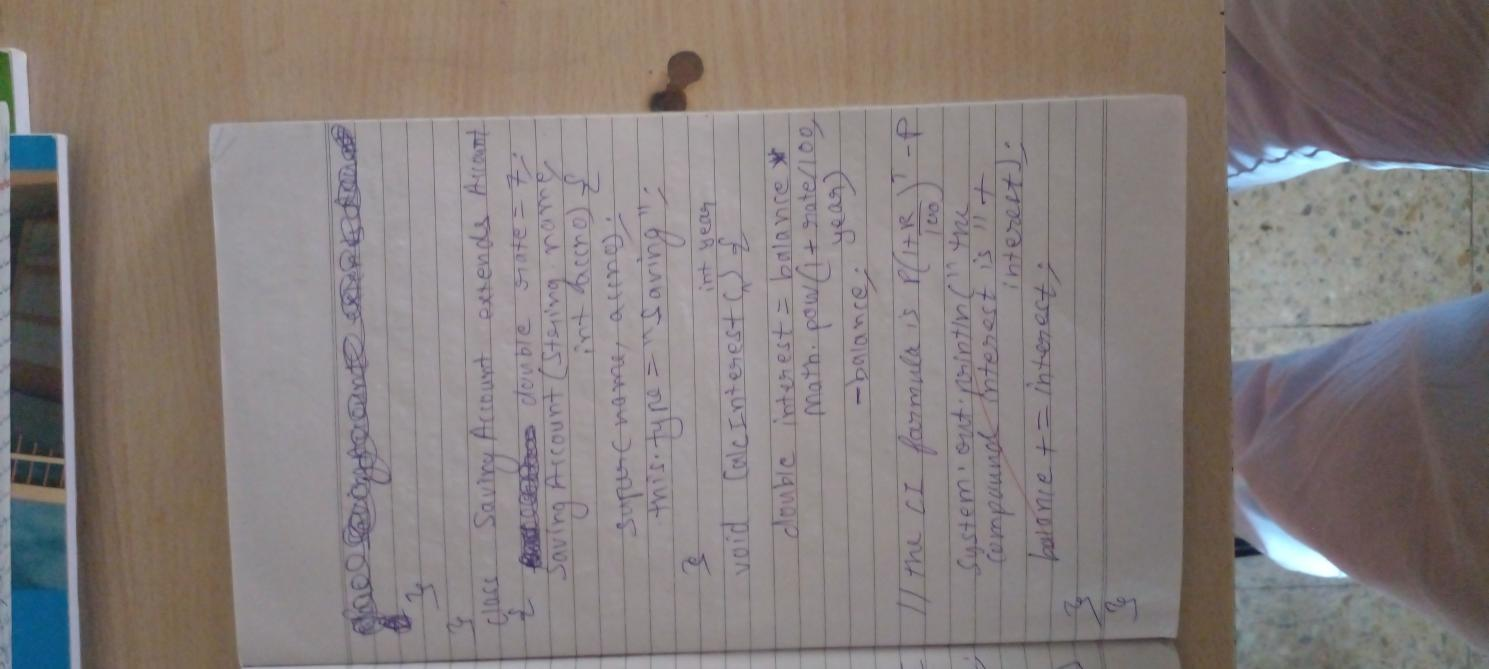 }
}
class Saving Account extends Account
{ double rate = 7;
Saving Account (String name,
int accno) {
super(name, accno);
this.type = "Saving";
}
int year
void CalcInterest () {
double interest = balance *
math.pow(1 + rate/100,
year)
- balance;
// the CI formula is P(1+R/100)^T - P
System.out.println("the
compound interest is " +
interest);
balance += interest;
}
}